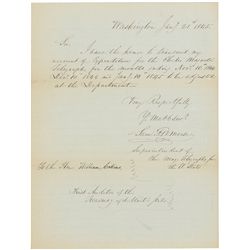 Washington Jany 21st 1845.
Sir,
I have the honor to transmit my
account of Expenditures for the Electro Magnetic
Telegraph for the months ending Novr 10th 1844
Decr 10th 1844 and Jany 10th 1845 to be adjusted
at the Department.
Very Respectfully
Yr Ob. Servt
Saml F. B. Morse
Superintendent of
the Mag. Telegraphs for
the U. States
To the Hon. William Collins
First Auditor of the
Treasury of the United States